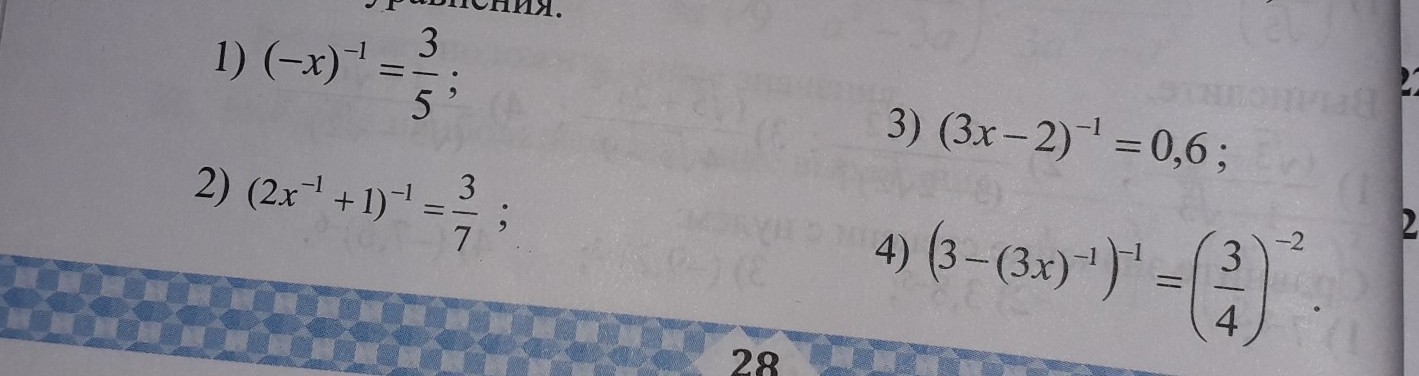 1) (−x)⁻¹ = 3/5 ;
2) (2x⁻¹ + 1)⁻¹ = 3/7 ;
3) (3x − 2)⁻¹ = 0,6 ;
4) (3 − (3x)⁻¹)⁻¹ = (3/4)⁻² .
28